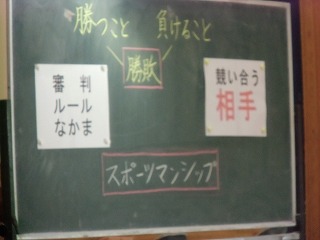 勝つこと 負けること
勝敗
審判
ルール
なかま
競い合う
相手
スポーツマンシップ